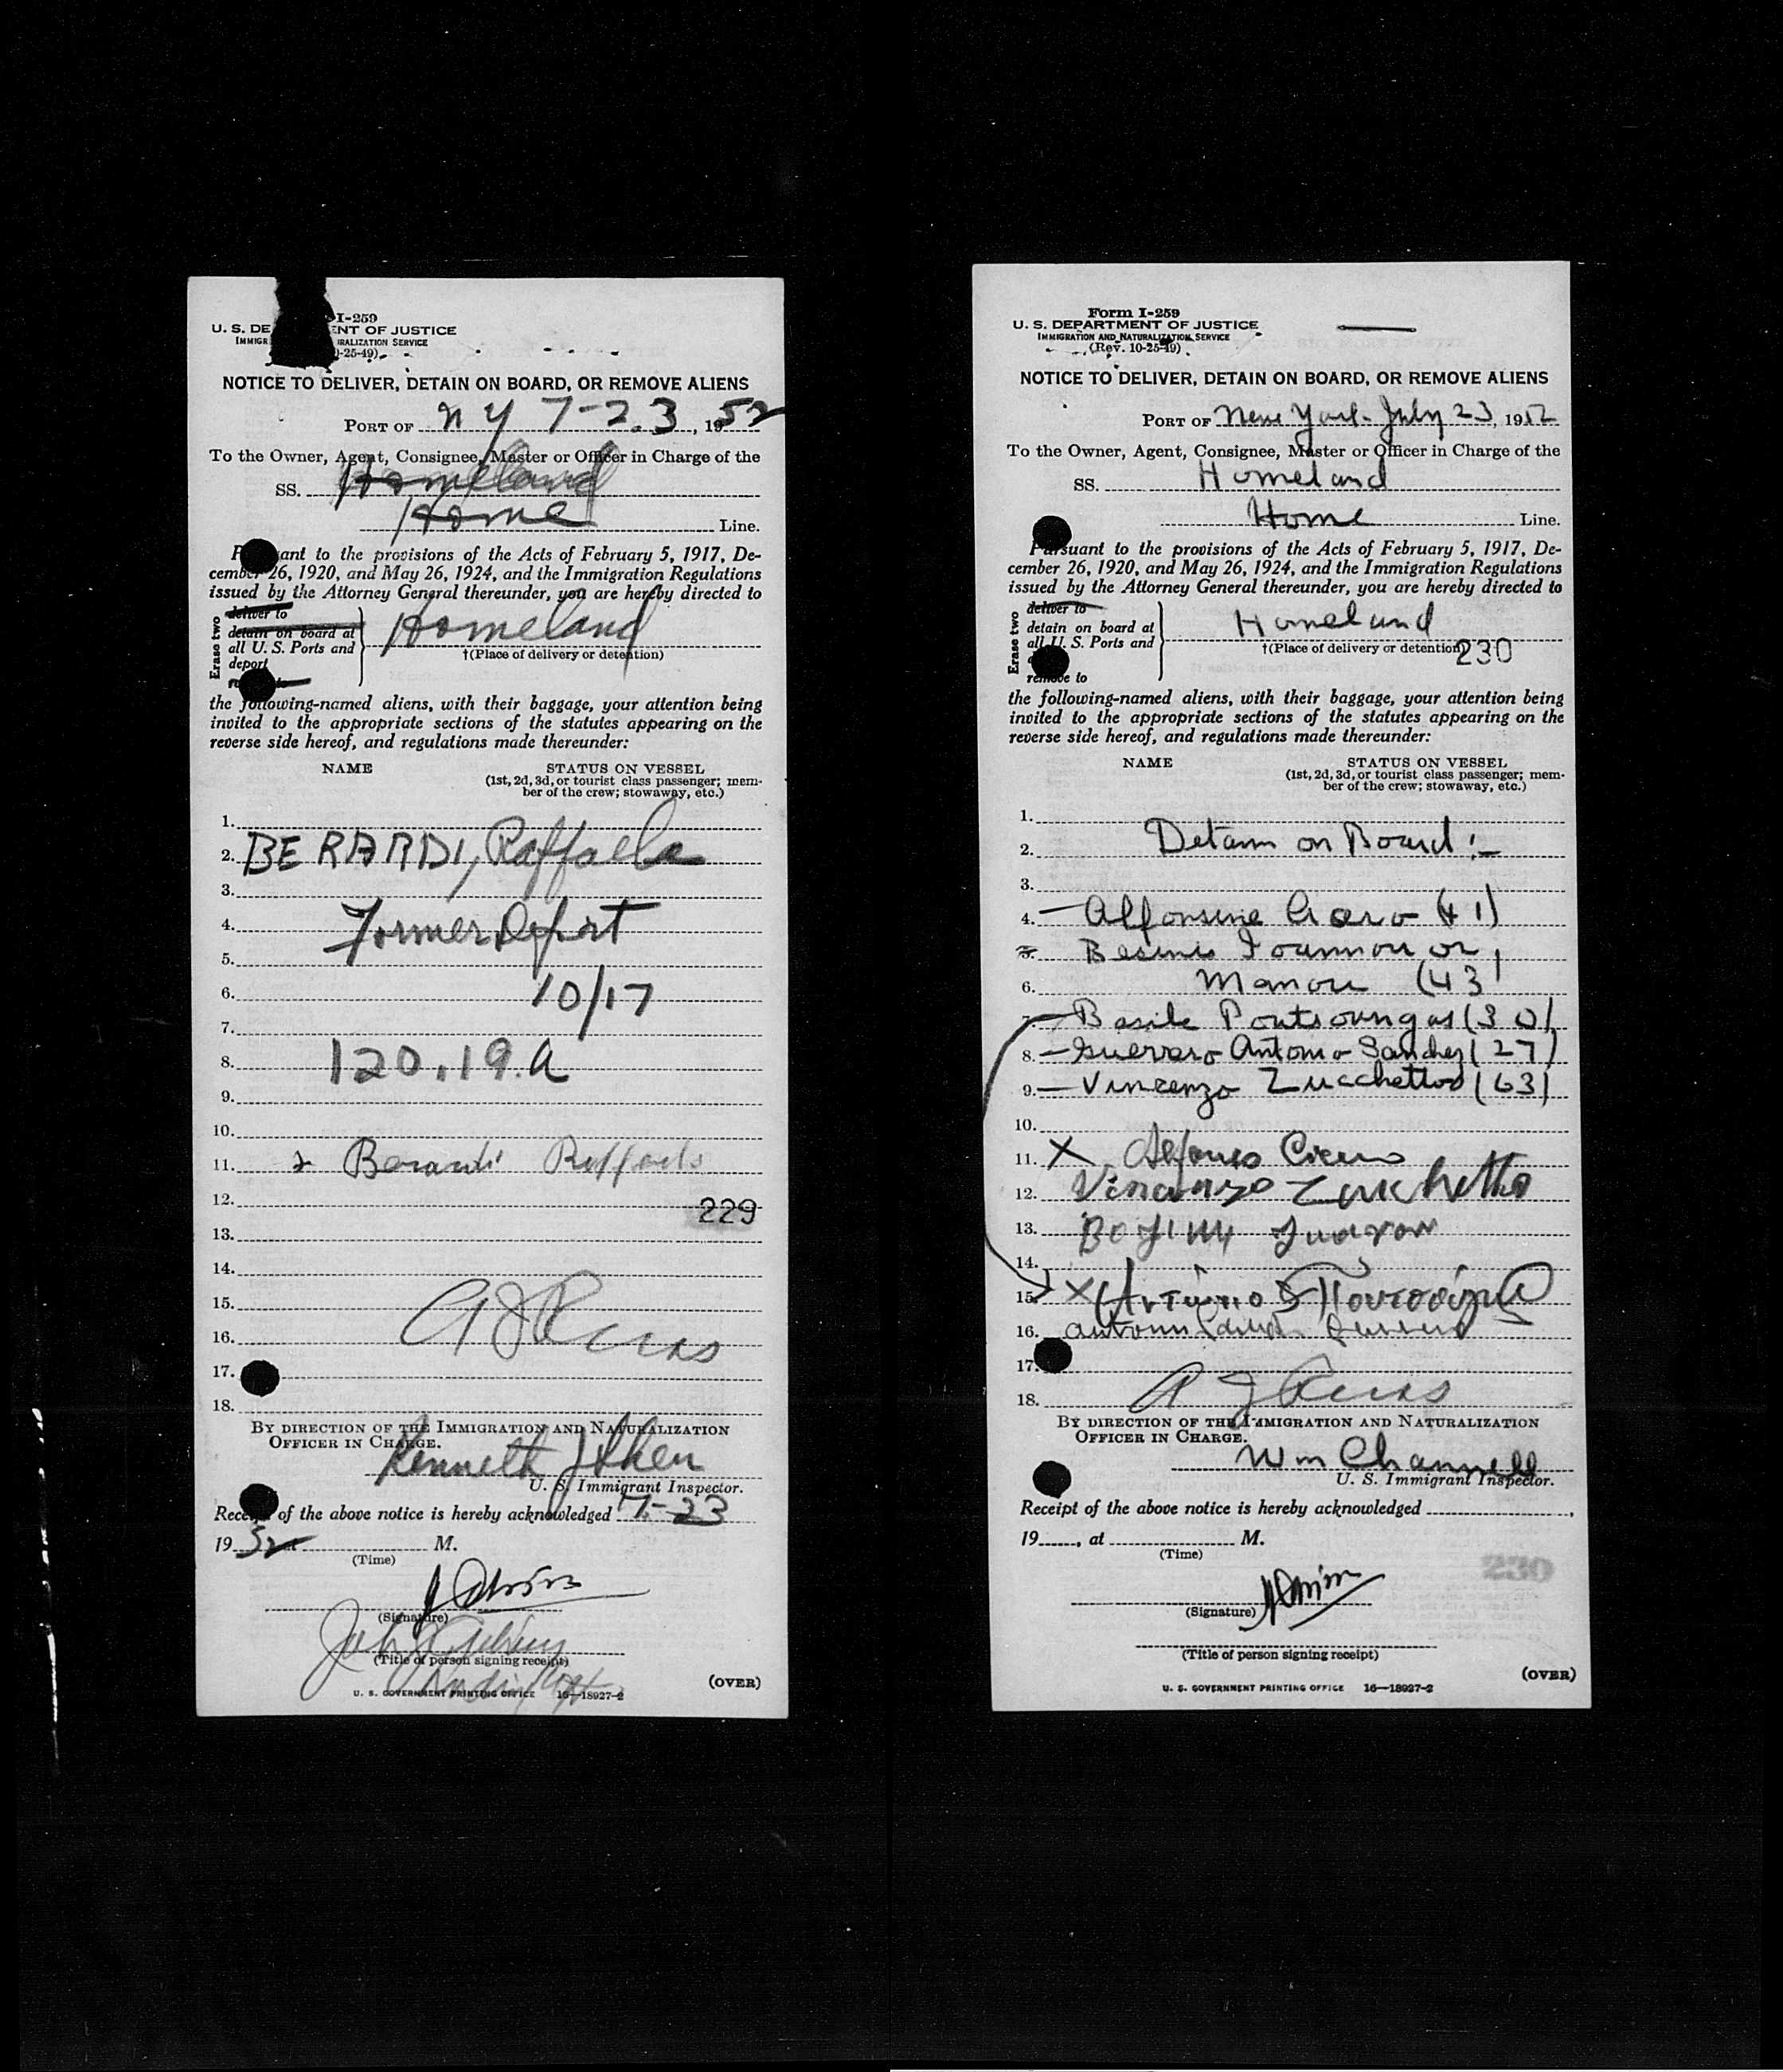 I-259
U. S. DE ENT OF JUSTICE
IMMIGR RALIZATION SERVICE
-25-49)
NOTICE TO DELIVER, DETAIN ON BOARD, OR REMOVE ALIENS
PORT OF N Y 7-23, 1952
To the Owner, Agent, Consignee, Master or Officer in Charge of the
SS. Homeland
Home Line.
P ant to the provisions of the Acts of February 5, 1917, De-
cember 26, 1920, and May 26, 1924, and the Immigration Regulations
issued by the Attorney General thereunder, you are hereby directed to
Erase two
deliver to
detain on board at
all U. S. Ports and
deport
Homeland
†(Place of delivery or detention)
the following-named aliens, with their baggage, your attention being
invited to the appropriate sections of the statutes appearing on the
reverse side hereof, and regulations made thereunder:
NAME STATUS ON VESSEL
(1st, 2d, 3d, or tourist class passenger; mem-
ber of the crew; stowaway, etc.)
1.
2. BERARDI, Raffaele
3.
4. Former Deport
5.
6. 10/17
7.
8. 120.19.A
9.
10.
11. Berardi
12. 229
13.
14.
15.
16.
17.
18.
BY DIRECTION OF THE IMMIGRATION AND NATURALIZATION
OFFICER IN CHARGE.
Kenneth J
U. S. Immigrant Inspector.
Receipt of the above notice is hereby acknowledged 7-23
1952 M.
(Time)
(Signature)
(Title of person signing receipt)
(OVER)
U. S. GOVERNMENT PRINTING OFFICE 16—18927-2
Form I-259
U. S. DEPARTMENT OF JUSTICE
IMMIGRATION AND NATURALIZATION SERVICE
(Rev. 10-25-49)
NOTICE TO DELIVER, DETAIN ON BOARD, OR REMOVE ALIENS
PORT OF New York July 23, 1952
To the Owner, Agent, Consignee, Master or Officer in Charge of the
SS. Homeland
Home Line.
Pursuant to the provisions of the Acts of February 5, 1917, De-
cember 26, 1920, and May 26, 1924, and the Immigration Regulations
issued by the Attorney General thereunder, you are hereby directed to
Erase two
deliver to
detain on board at
all U. S. Ports and
remove to
Homeland
†(Place of delivery or detention)
230
the following-named aliens, with their baggage, your attention being
invited to the appropriate sections of the statutes appearing on the
reverse side hereof, and regulations made thereunder:
NAME STATUS ON VESSEL
(1st, 2d, 3d, or tourist class passenger; mem-
ber of the crew; stowaway, etc.)
1.
2. Detain on Board:-
3.
4. — (41)
5. or
6. (43)
7. — Basile Poutsoungas (30)
8. — Guerrero Antonio Sanchez (27)
9. — Vincenzo Zucchetto (63)
10.
11. X Alfonso Cicero
12. Vincenzo Zucchetto
13.
14.
15. X
16.
17.
18.
BY DIRECTION OF THE IMMIGRATION AND NATURALIZATION
OFFICER IN CHARGE.
Wm Channell
U. S. Immigrant Inspector.
Receipt of the above notice is hereby acknowledged
19 , at M.
(Time)
230
(Signature)
(Title of person signing receipt)
(OVER)
U. S. GOVERNMENT PRINTING OFFICE 16—18927-2